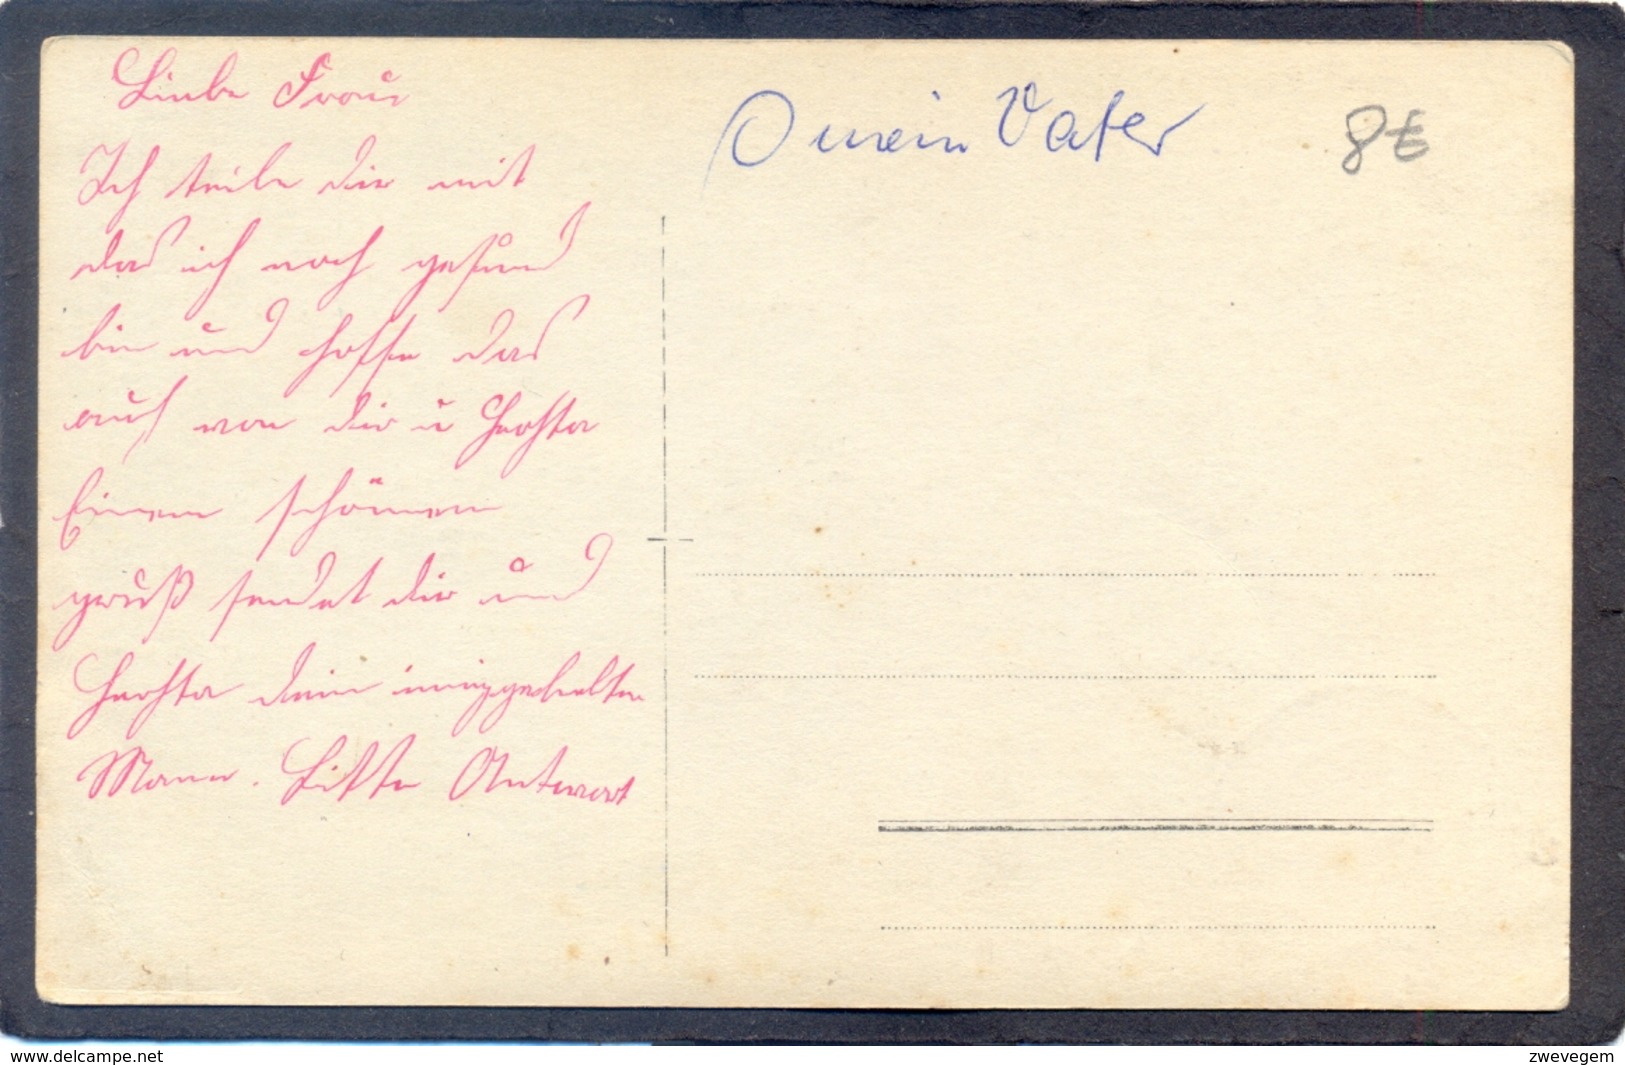 Liebe Frau
Ich teile dir mit
das ich noch gesund
bin und hoffe das
auch von dir u
Einen schönen
gruß sendet dir und
dein innigstgeliebter
Mann. Bitte Antwort
O mein Vater
8€
www.delcampe.net
zwevegem